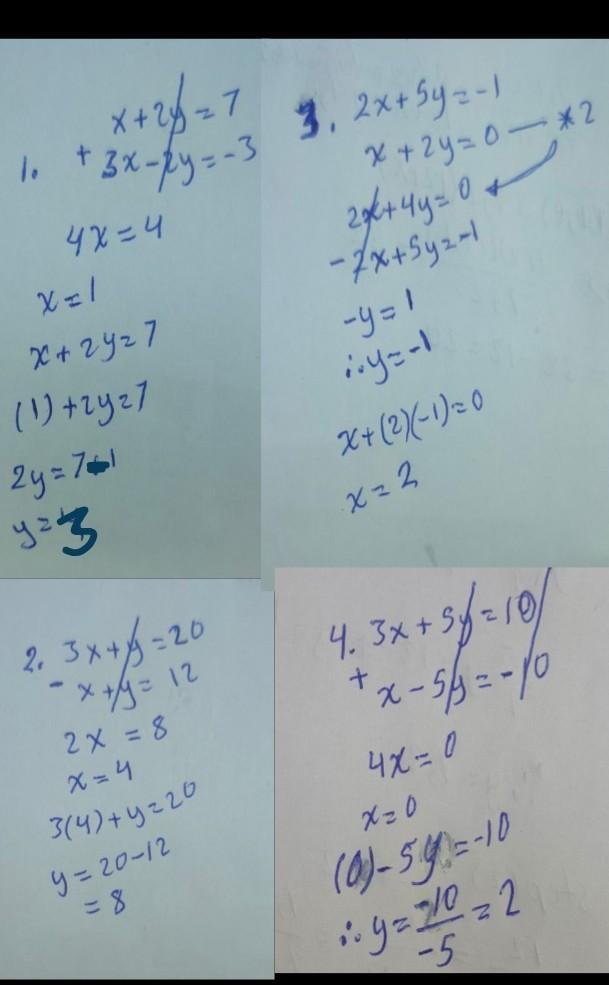 1. x+2y=7
+ 3x-2y=-3
4x=4
x=1
x+2y=7
(1)+2y=7
2y=7-1
y=3
2. 3x+y=20
- x+y= 12
2x = 8
x=4
3(4)+y=20
y=20-12
= 8
3. 2x+5y=-1
x+2y=0 *2
2x+4y=0
-2x+5y=-1
-y=1
∴y=-1
x+(2)(-1)=0
x=2
4. 3x+5y=10
+ x-5y=-10
4x=0
x=0
(0)-5y=-10
∴y=-10/-5=2